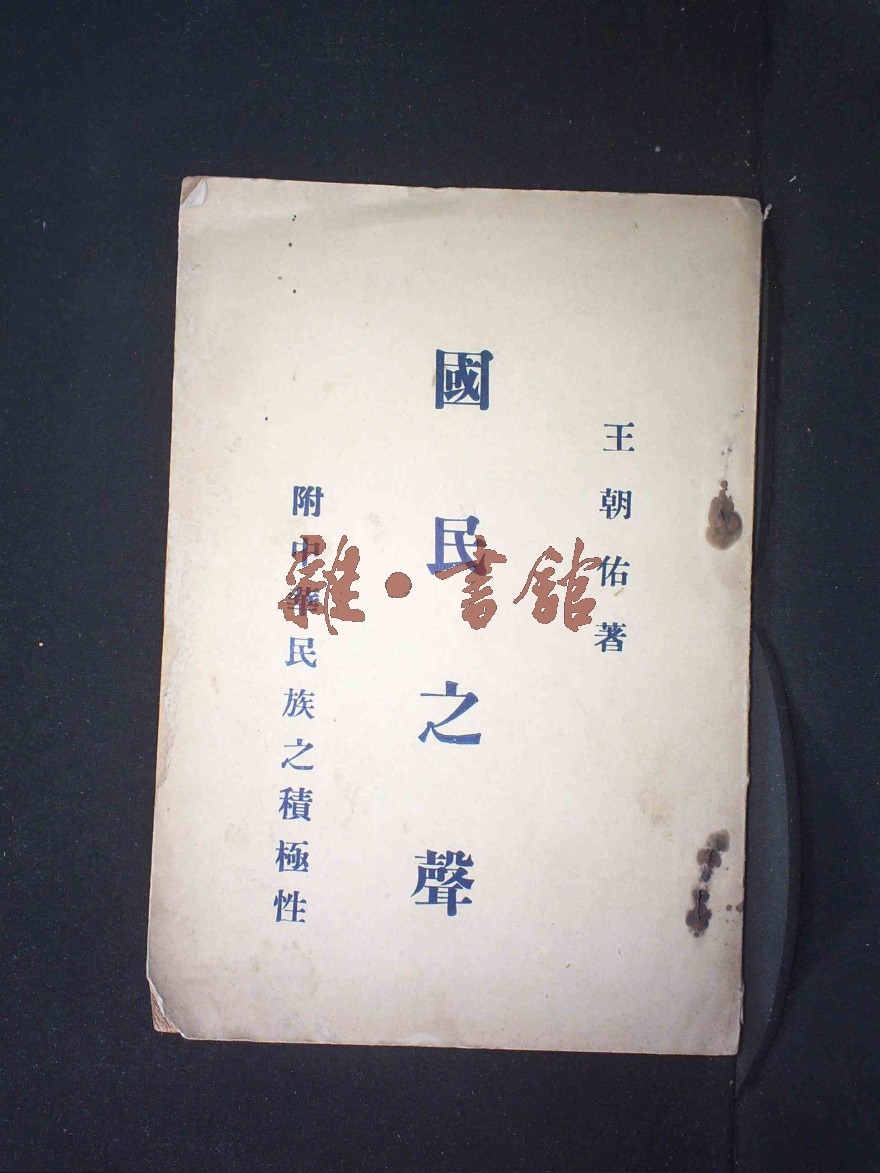 王朝佑著
國民之聲
附中華民族之積極性
雜·書館